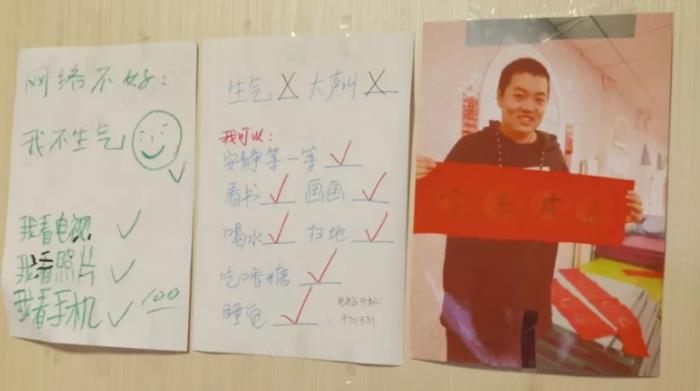 网络不好:
我不生气
我看电视 ✓
我看照片
我看手机 ✓ 100
生气 X 大声叫 X
我可以:
安静等一等 ✓
看书 ✓ 画画 ✓
喝水 ✓ 扫地 ✓
吃口香糖 ✓
睡觉 ✓
970331